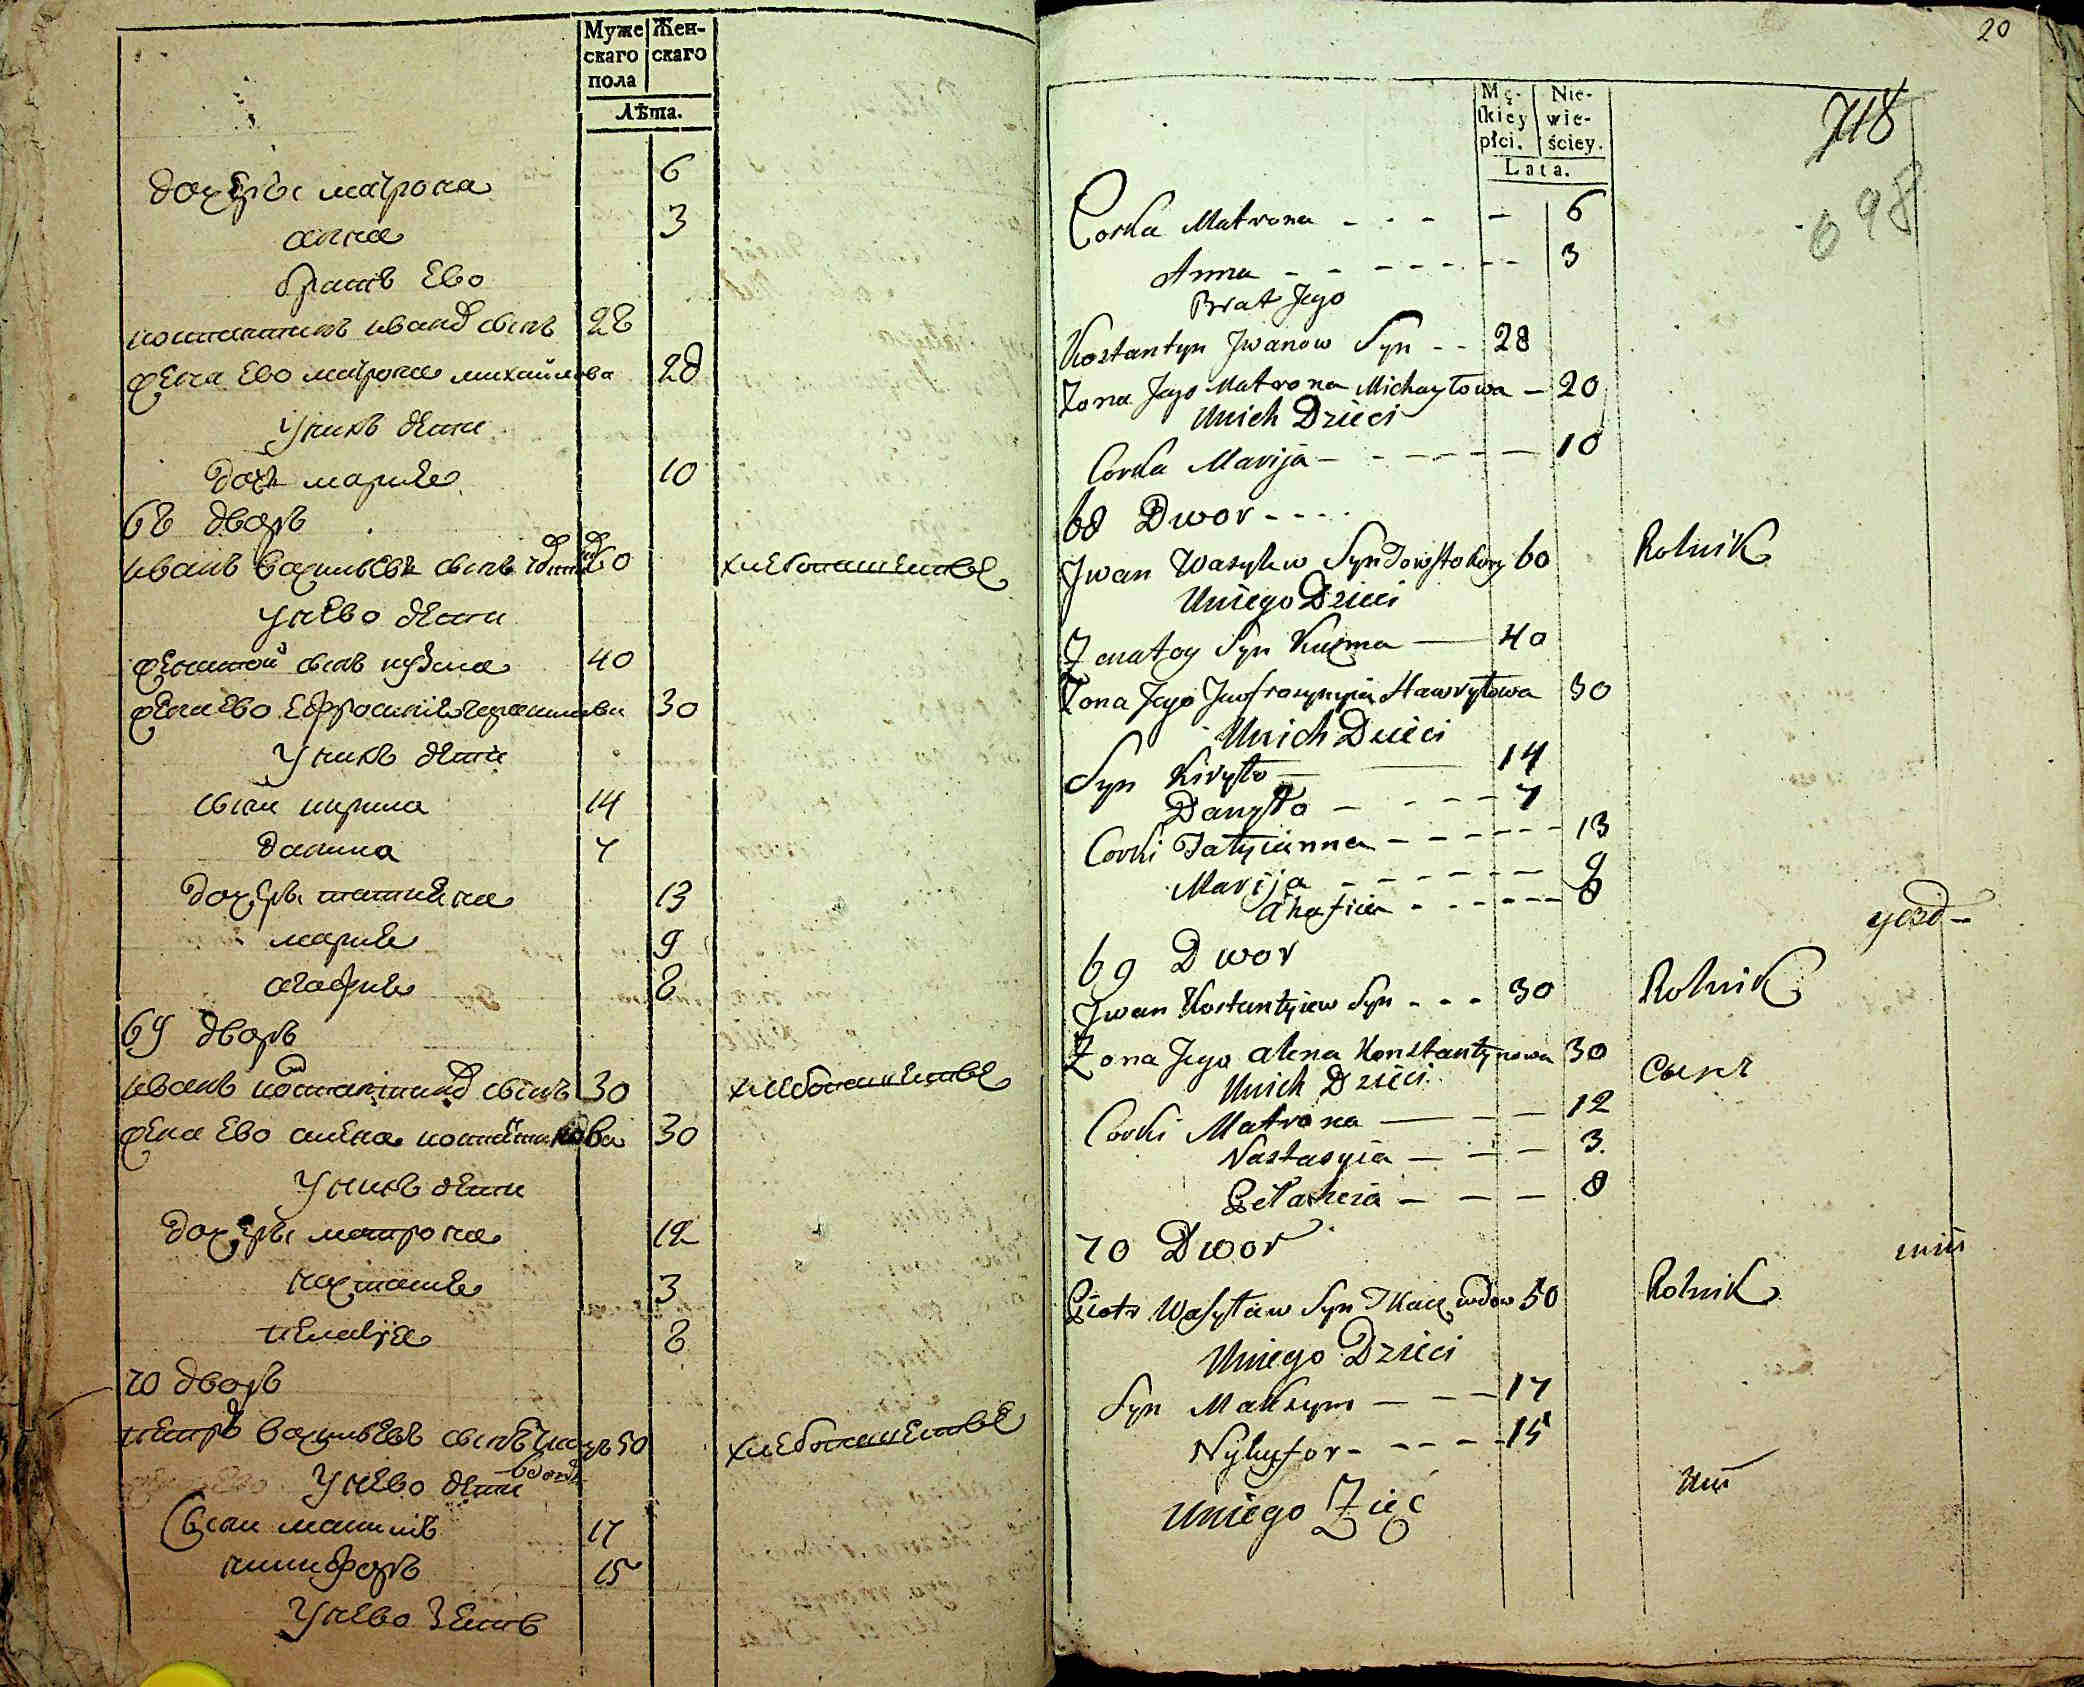 Муже Жен-
скаго скаго
пола
Лѣта.
дочери матрона 6
анна 3
братъ ево
костантинъ иванов сынъ 28
жена ево матрона михайлова 20
у нихъ дети
дочь мария 10
68 дворъ
иванъ васильевъ сынъ 60 хлебопашествЕ
у нево дети
женатой сынъ кузма 40
жена ево Ефросиния гаврилова 30
у нихъ дети
сыни кирила 14
данила 7
дочери татияна 13
мария 9
агафия 8
69 дворъ
иванъ костантинов сынъ 30 хлебопашествЕ
жена ево алена костантинова 30
у нихъ дети
дочери матрона 12
настасия 3
пелагия 8
70 дворъ
петръ васильевъ сынъ 50 хлебопашествЕ
у нево дети
Сыни максимъ 17
никифоръ 15
у нево Зять
20
718
698
Mę- Nie-
skiey wie-
płci. ściey.
Lata.
Corka Matrona - - - - 6
Anna - - - - - - - 3
Brat Jego
Kostantyn Jwanow Syn - - 28
Zona Jego Matrona Michayłowa - 20
Unich Dzieci
Corka Marija - - - - - - 10
68 Dwor - - - -
Jwan Wasylew Syn 60 Rolnik
Uniego Dzieci
Zenatoy Syn Kuzma — 40
Zona Jego Jewfrosynyia Hawryłowa 30
Unich Dzieci
Syn Kiryło — — 14
Danyło - - - - 7
Corki Tatyianna - - - - - - 13
Marija - - - - - - 9
Ahafiia - - - - - - 8
69 Dwor
Jwan Kostantyiew Syn - - - 30 Rolnik
Zona Jego alena Konstantynowa 30
Unich Dzieci
сынъ
Corki Matrona — - - 12
Nastasyia - - - 3.
Pełahiia - - - 8
70 Dwor
Piotr Wasylew Syn Tkacz wdow 50 Rolnik
Uniego Dzieci
Syn Maksym - - - 17
Nykyfor - - - - - 15
Uniego Zięć